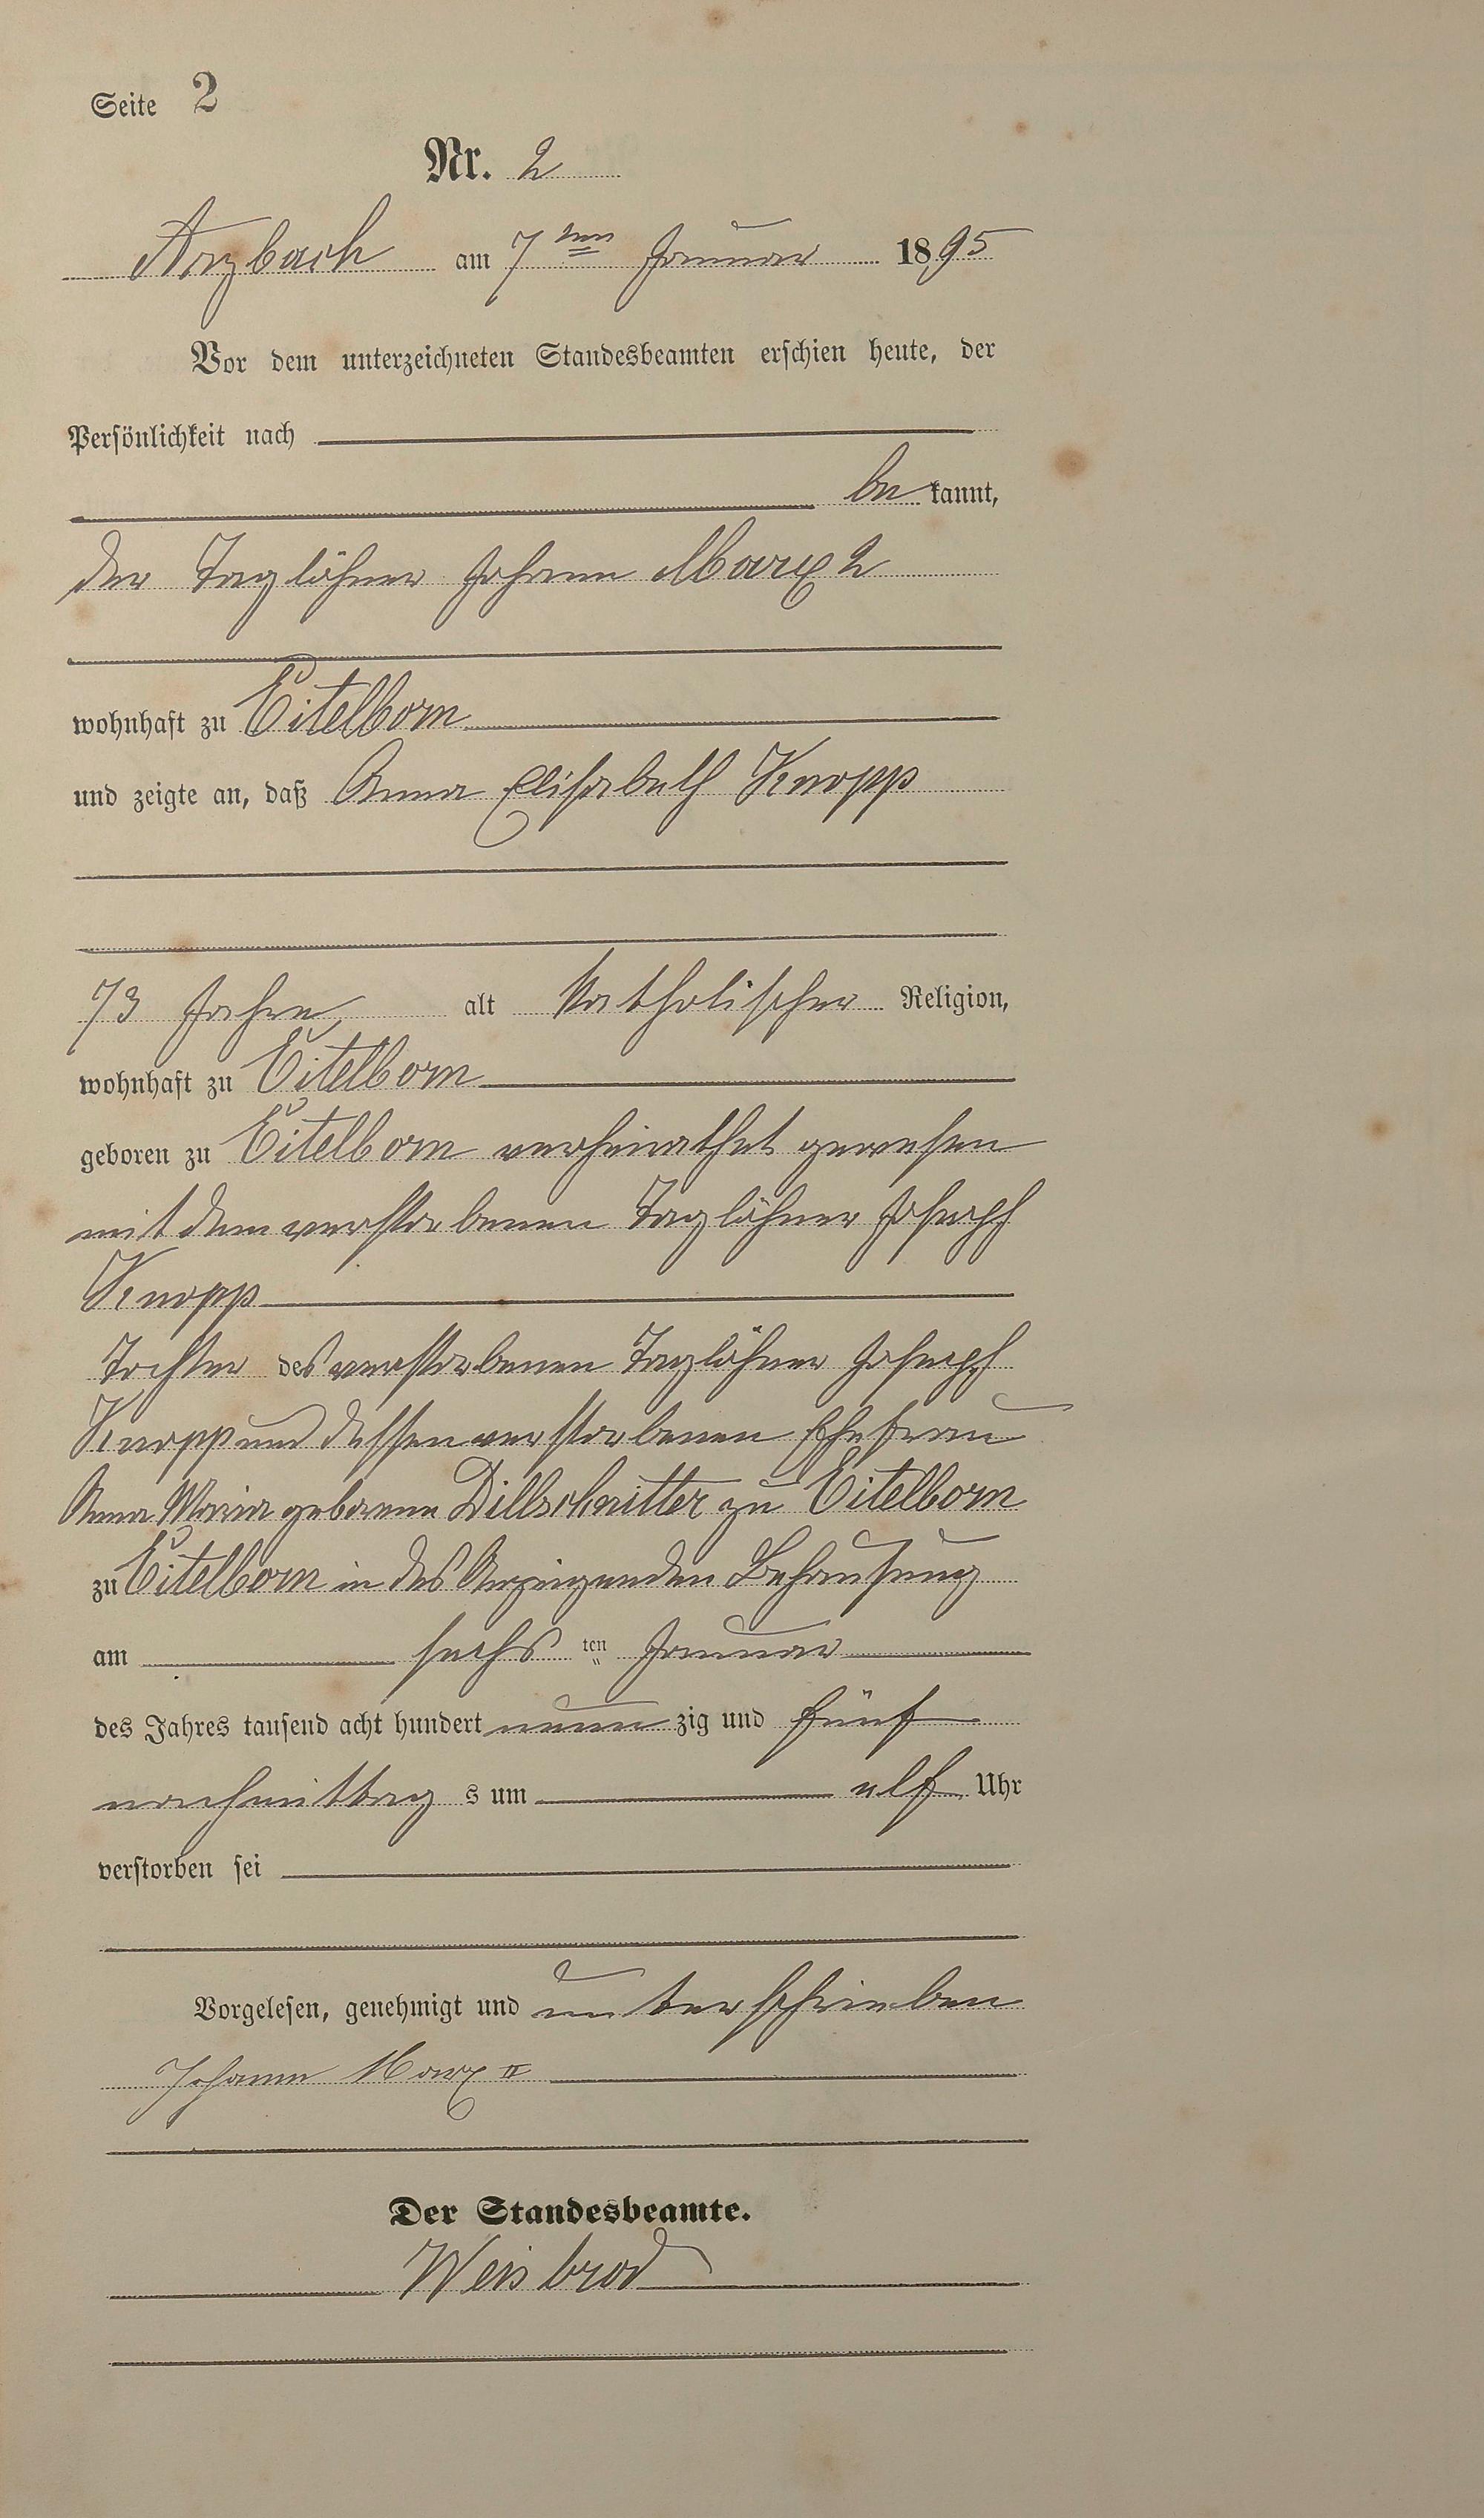 Seite 2
Nr. 2
Arzbach am 7ten Januar 1895
Vor dem unterzeichneten Standesbeamten erschien heute, der
Persönlichkeit nach
be kannt,
der Taglöhner Johann Marx 2
wohnhaft zu Eitelborn
und zeigte an, daß Anna Elisabeth Knopp
73 Jahre, alt katholischer Religion,
wohnhaft zu Eitelborn
geboren zu Eitelborn verheirathet gewesen
mit dem verstorbenen Taglöhner Joseph
Knopp
Tochter des verstorbenen Taglöhner Joseph
Knopp und dessen verstorbenen Ehefrau
Anna Maria geborene Dillschnitter zu Eitelborn
zu Eitelborn in des Anzeigenden Behausung
am sechs ten Januar
des Jahres tausend acht hundert neun zig und fünf
nachmittag s um elf Uhr
verstorben sei
Vorgelesen, genehmigt und unterschrieben
Johann Marx II
Der Standesbeamte.
Weisbrod